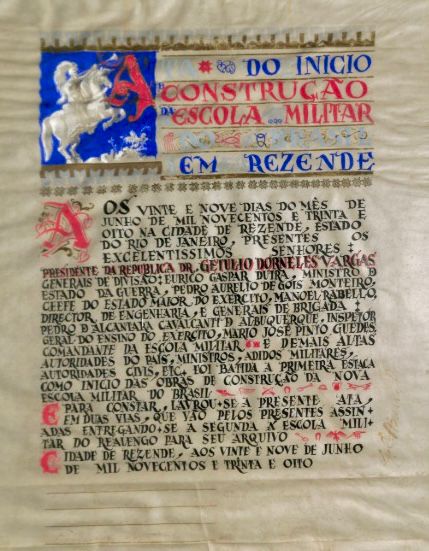 ATA DO INICIO
DA CONSTRUÇÃO
DA ESCOLA MILITAR
EM REZENDE
AOS VINTE E NOVE DIAS DO MÊS DE
JUNHO DE MIL NOVECENTOS E TRINTA E
OITO NA CIDADE DE REZENDE, ESTADO
DO RIO DE JANEIRO, PRESENTES OS
EXCELENTISSIMOS SENHORES:
PRESIDENTE DA REPUBLICA DR. GETULIO DORNELES VARGAS
GENERAIS DE DIVISÃO: EURICO GASPAR DUTRA, MINISTRO D
ESTADO DA GUERRA, PEDRO AURELIO DE GÓIS MONTEIRO,
CHEFE DO ESTADO MAIOR DO EXERCITO, MANOEL RABELLO,
DIRECTOR DE ENGENHARIA, E GENERAIS DE BRIGADA:
PEDRO D ALCANTARA CAVALCANTI D ALBUQUERQUE, INSPETOR
GERAL DO ENSINO DO EXERCITO, MARIO JOSÉ PINTO GUEDES,
COMANDANTE DA ESCOLA MILITAR E DEMAIS ALTAS
AUTORIDADES DO PAÍS, MINISTROS, ADIDOS MILITARES,
AUTORIDADES CIVIS, ETC. FOI BATIDA A PRIMEIRA ESTACA
COMO INICIO DAS OBRAS DE CONSTRUÇÃO DA NOVA
ESCOLA MILITAR DO BRASIL
E PARA CONSTAR, LAVROU-SE A PRESENTE ATA,
EM DUAS VIAS QUE VÃO PELOS PRESENTES ASSIN-
ADAS ENTREGANDO-SE A SEGUNDA A ESCOLA MILI-
TAR DO REALENGO PARA SEU ARQUIVO
CIDADE DE REZENDE, AOS VINTE E NOVE DE JUNHO
DE MIL NOVECENTOS E TRINTA E OITO